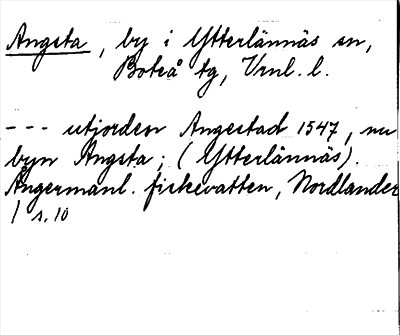 Angsta, by i Ytterlännäs sn,
Boteå tg, Vrnl. l.
--- utjorden Angestad 1547, nu
byn Angsta; (Ytterlännäs).
Ångermanl. fiskevatten, Nordlander
1 s. 10